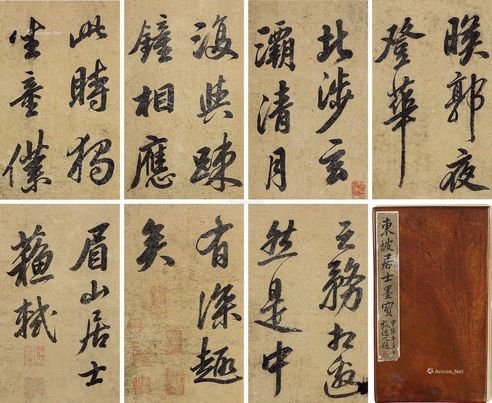 暎郭夜
登華
北涉玄
灞清月
復與疎
鐘相應
此時獨
坐童僕
東坡居士墨寶
之務相邀
然是中
有深趣
矣
眉山居士
蘇軾
Artron.Net